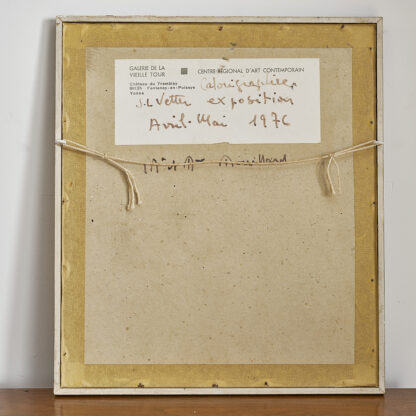 GALERIE DE LA
VIEILLE TOUR
CENTRE RÉGIONAL D'ART CONTEMPORAIN
Château du Tremblay
89120 Fontenoy-en-Puisaye
Yonne
J.L Vetter exposition
Avril-Mai 1976
Mr et Mme